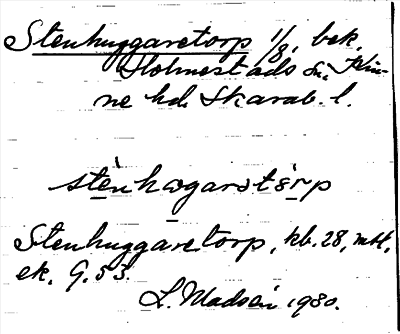 Stenhuggaretorp 1/8, bek.
Holmestads sn, Kin-
ne hd. Skarab. l.
stènhagarətørp
Stenhuggaretorp, kb. 28, mtl,
ek. G. 53.
L. Madsén 1980.